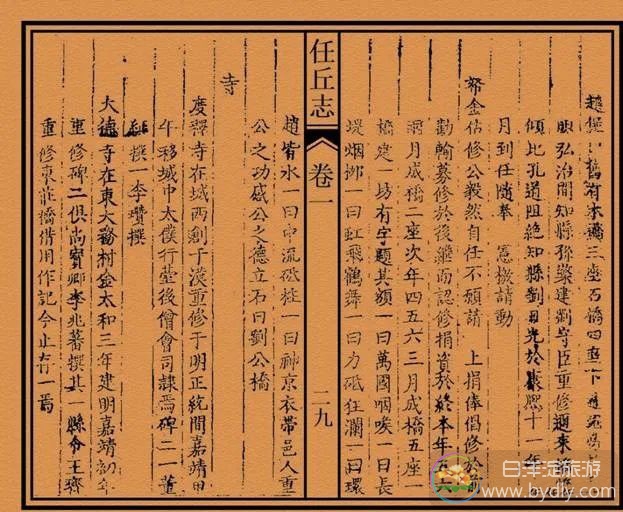 舊有木橋三座石橋四座下
明弘治間知縣孫榮建劉守臣重修邇來修
傾圮孔道阻絶知縣劉日光於康熙十一年
月到任隨奉 憲檄請動
帑金估修公毅然自任不煩請 上捐俸倡修於前
勸輸募修於後認修捐資於終本年五六
兩月成橋二座次年四五六三月成橋五座一
橋建一坊有字題其額一曰萬國咽喉一曰長
堤烟栁一曰虹飛鶴舞一曰力砥狂瀾一曰環
任丘志 卷一 二九
趙背水一曰中流砥柱一曰神京衣帶邑人重
公之功感公之德立石曰劉公橋
寺
慶釋寺在城西創于漢重修于明正統間嘉靖甲
午移城中太僕行臺後僧會司隷焉碑二一董
撰一李瓚撰
大德寺在東大務村金太和三年建明嘉靖初年
重修碑二俱尚寳卿李兆蕃撰其一縣令王齊
重修棗莊橋借用作記今止存一焉
白洋淀旅游
www.bydly.com